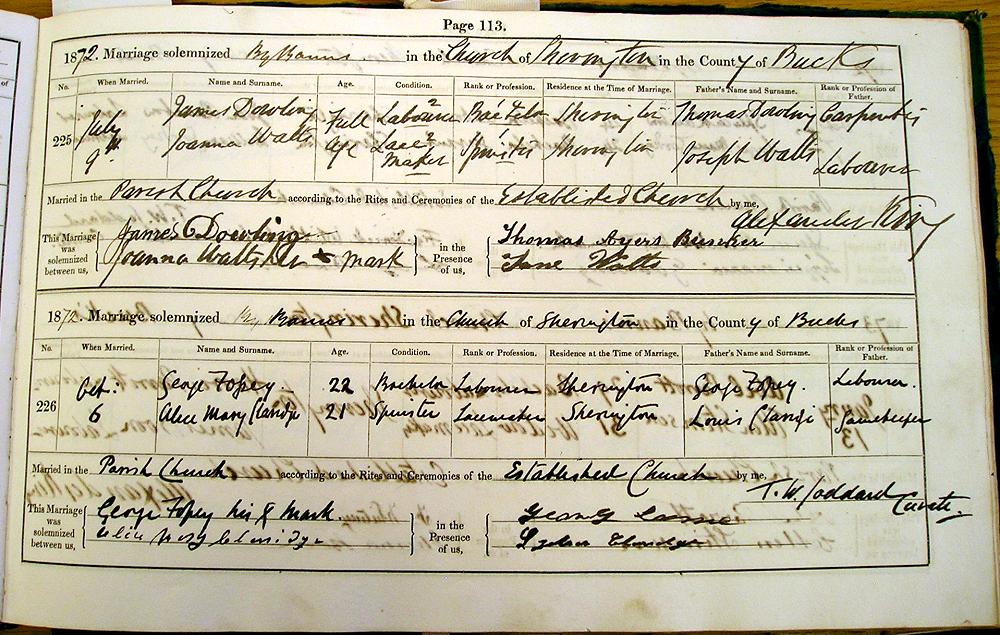 Page 113.
1872. Marriage solemnized By Banns in the Church of Sherington in the County of Bucks
No. When Married. Name and Surname. Age. Condition. Rank or Profession. Residence at the Time of Marriage. Father's Name and Surname. Rank or Profession of Father.
225 July 9th James Dowling Full Labourer 2 Bachelor Sherington Thomas Dowling Carpenter
Joanna Watts age Lace 2 Maker Spinster Sherington Joseph Watts Labourer
Married in the Parish Church according to the Rites and Ceremonies of the Established Church by me, Alexander King
This Marriage was solemnized between us, James Dowling in the Presence of us, Thomas Ayers
Joanna Watts her x mark Jane Watts
1872. Marriage solemnized By Banns in the Church of Sherington in the County of Bucks
No. When Married. Name and Surname. Age. Condition. Rank or Profession. Residence at the Time of Marriage. Father's Name and Surname. Rank or Profession of Father.
226 Oct: 6 George Fopey 22 Bachelor Labourer Sherington George Fopey. Labourer.
Alice Mary 21 Spinster Lacemaker Sherington Louis Gamekeeper
Married in the Parish Church according to the Rites and Ceremonies of the Established Church by me, T. W. Goddard Curate.
This Marriage was solemnized between us, George Fopey his X Mark. in the Presence of us,
Alice Mary